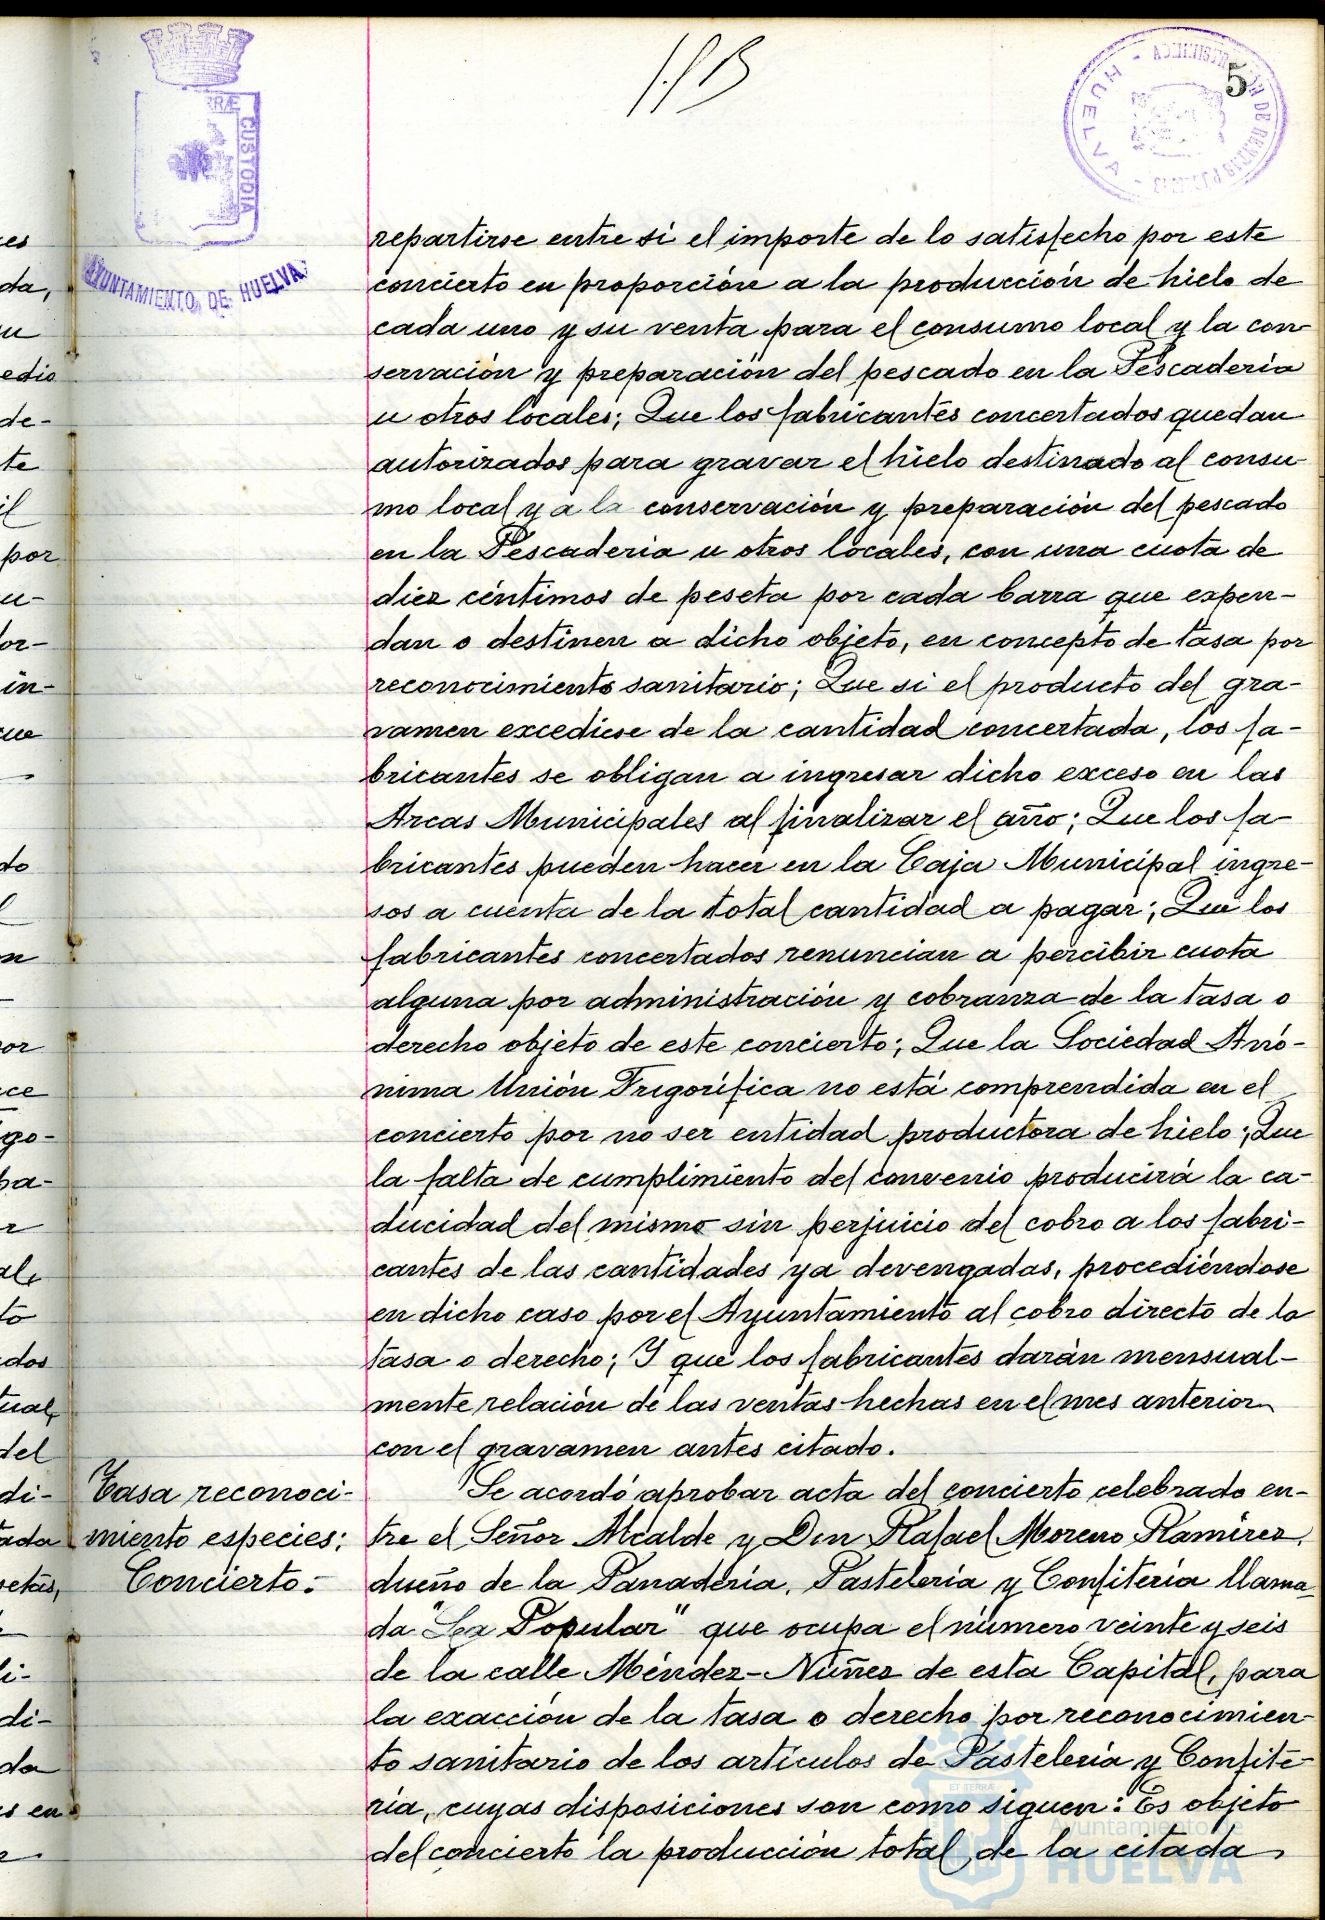 5
TERRÆ
CUSTODIA
AYUNTAMIENTO DE HUELVA
HUELVA
repartirse entre sí el importe de lo satisfecho por este
concierto en proporción a la producción de hielo de
cada uno y su venta para el consumo local y la con-
servación y preparación del pescado en la Pescadería
u otros locales; Que los fabricantes concertados quedan
autorizados para gravar el hielo destinado al consu-
mo local y a la conservación y preparación del pescado
en la Pescaderia u otros locales, con una cuota de
diez céntimos de peseta por cada barra que expen-
dan o destinen a dicho objeto, en concepto de tasa por
reconocimiento sanitario; Que si el producto del gra-
vamen excediese de la cantidad concertada, los fa-
bricantes se obligan a ingresar dicho exceso en las
Arcas Municipales al finalizar el año; Que los fa-
bricantes pueden hacer en la Caja Municipal ingre-
sos a cuenta de la total cantidad a pagar; Que los
fabricantes concertados renuncian a percibir cuota
alguna por administración y cobranza de la tasa o
derecho objeto de este concierto; Que la Sociedad Anó-
nima Unión Frigorífica no está comprendida en el
concierto por no ser entidad productora de hielo; Que
la falta de cumplimiento del convenio producirá la ca-
ducidad del mismo sin perjuicio del cobro a los fabri-
cantes de las cantidades ya devengadas, procediéndose
en dicho caso por el Ayuntamiento al cobro directo de la
tasa o derecho; Y que los fabricantes darán mensual-
mente relación de las ventas hechas en el mes anterior
con el gravamen antes citado.
Tasa reconoci-
miento especies:
Concierto.-
Se acordó aprobar acta del concierto celebrado en-
tre el Señor Alcalde y Don Rafael Moreno Ramírez,
dueño de la Panadería, Pastelería y Confitería llama-
da "La Popular" que ocupa el número veinte y seis
de la calle Méndez-Núñez de esta Capital, para
la exacción de la tasa o derecho por reconocimien-
to sanitario de los artículos de Pastelería y Confite-
ría, cuyas disposiciones son como siguen: Es objeto
del concierto la producción total de la citada
Ayuntamiento de
HUELVA